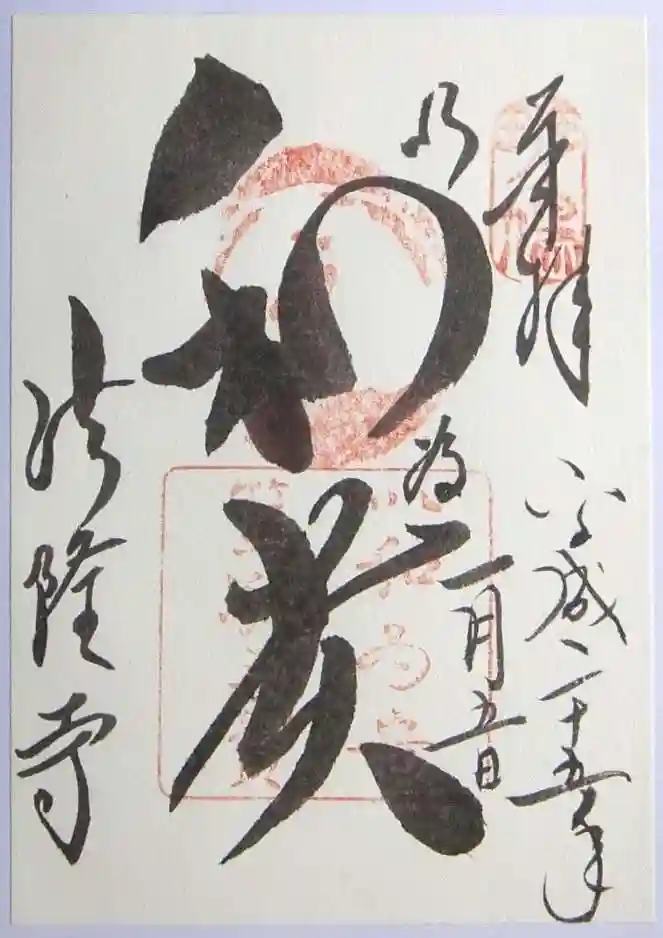 奉拝
平成二十五年
一月五日
以和為貴
法隆寺